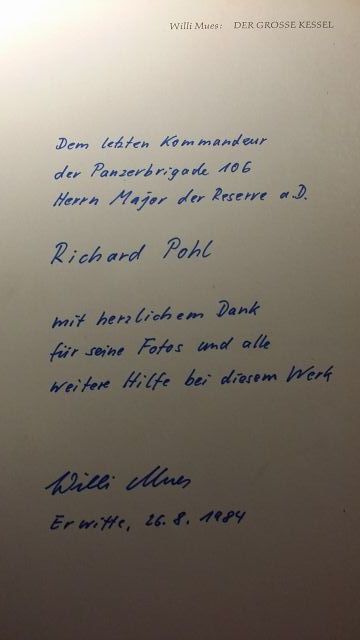 Willi Mues: DER GROSSE KESSEL
Dem letzten Kommandeur
der Panzerbrigade 106
Herrn Major der Reserve a.D.
Richard Pohl
mit herzlichem Dank
für seine Fotos und alle
weitere Hilfe bei diesem Werk
Willi Mues
Erwitte, 26.8.1984